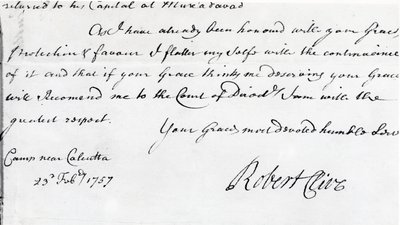 returned to his Capital at Mura'adavad
As I have already been honourd with your Graces
Protection & favour I flatter my Selfe with the continuance
of it and that if your Grace thinks me deserving your Grace
will Recomend me to the Court of Direct.rs I am with the
greatest respect.
Your Graces most devoted humble Serv
Camp near Calcutta
23d Feb.ry 1757
Robert Clive